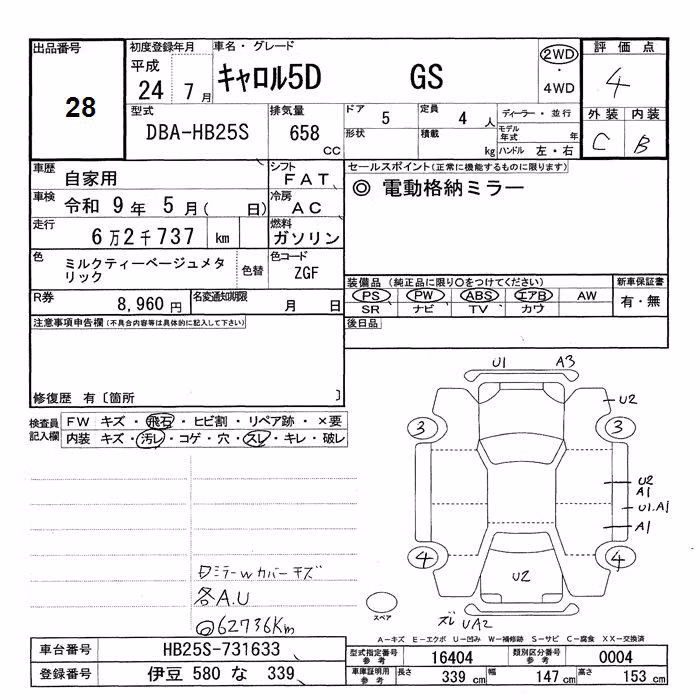 出品番号
28
初度登録年月
平成
24 7月
車名・グレード
キャロル5D GS
2WD
・
4WD
評価点
4
外装 内装
C B
型式
DBA-HB25S
排気量
658
CC
ドア 5
定員 4 人
形状
積載 kg
ディーラー・並行
モデル年式 年
ハンドル 左・右
車歴 自家用
シフト FAT
車検 令和 9年 5月( 日)
冷房 AC
走行 6万2千737 km
燃料 ガソリン
色 ミルクティーベージュメタリック
色替
色コード ZGF
R券 8,960円
名変通知期限 月 日
セールスポイント(正常に機能するものに限ります)
◎ 電動格納ミラー
装備品 (純正品に限り○をつけてください)
PS PW ABS エアB AW
SR ナビ TV カワ
新車保証書
有・無
後日品
注意事項申告欄(不具合内容等は具体的に記入して下さい)
修復歴 有〔箇所 〕
検査員記入欄
FW キズ・飛石・ヒビ割・リペア跡・×要
内装 キズ・汚レ・コゲ・穴・スレ・キレ・破レ
U1 A3
U2
3 3
U2
A1
U1.A1
A1
4 4
U2
スペア
ズレ UA2
ミラーwカバーキズ
各A.U
◎62736Km
A-キズ E-エクボ U-凹み W-補修跡 S-サビ C-腐食 XX-交換済
車台番号 HB25S-731633
登録番号 伊豆 580 な 339
型式指定番号 参考 16404
類別区分番号 参考 0004
車庫証明用 参考 長さ 339 cm 幅 147 cm 高さ 153 cm